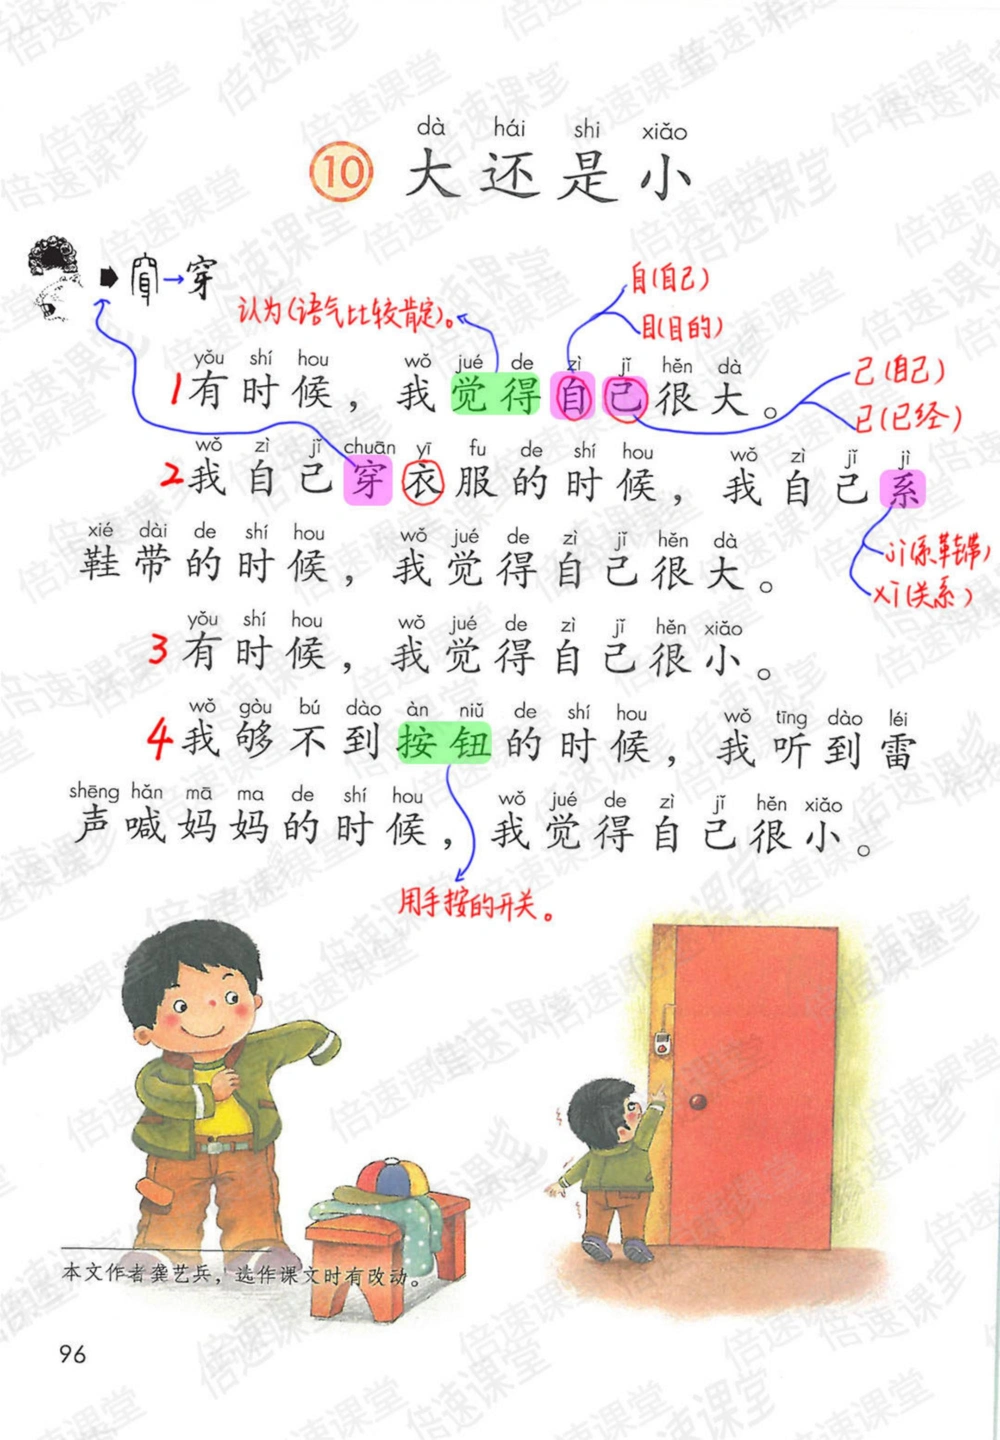 dà hái shi xiǎo
10 大还是小
穿→穿
认为(语气比较肯定)。
自(自己)
目(目的)
yǒu shí hou wǒ jué de zì jǐ hěn dà
1有时候，我觉得自己很大。
己(自己)
已(已经)
wǒ zì jǐ chuān yī fu de shí hou wǒ zì jǐ jì
2我自己穿衣服的时候，我自己系
xié dài de shí hou wǒ jué de zì jǐ hěn dà
鞋带的时候，我觉得自己很大。
jì(系鞋带)
xì(关系)
yǒu shí hou wǒ jué de zì jǐ hěn xiǎo
3有时候，我觉得自己很小。
wǒ gòu bú dào àn niǔ de shí hou wǒ tīng dào léi
4我够不到按钮的时候，我听到雷
shēng hǎn mā ma de shí hou wǒ jué de zì jǐ hěn xiǎo
声喊妈妈的时候，我觉得自己很小。
用手按的开关。
本文作者龚艺兵，选作课文时有改动。
96
倍速课堂